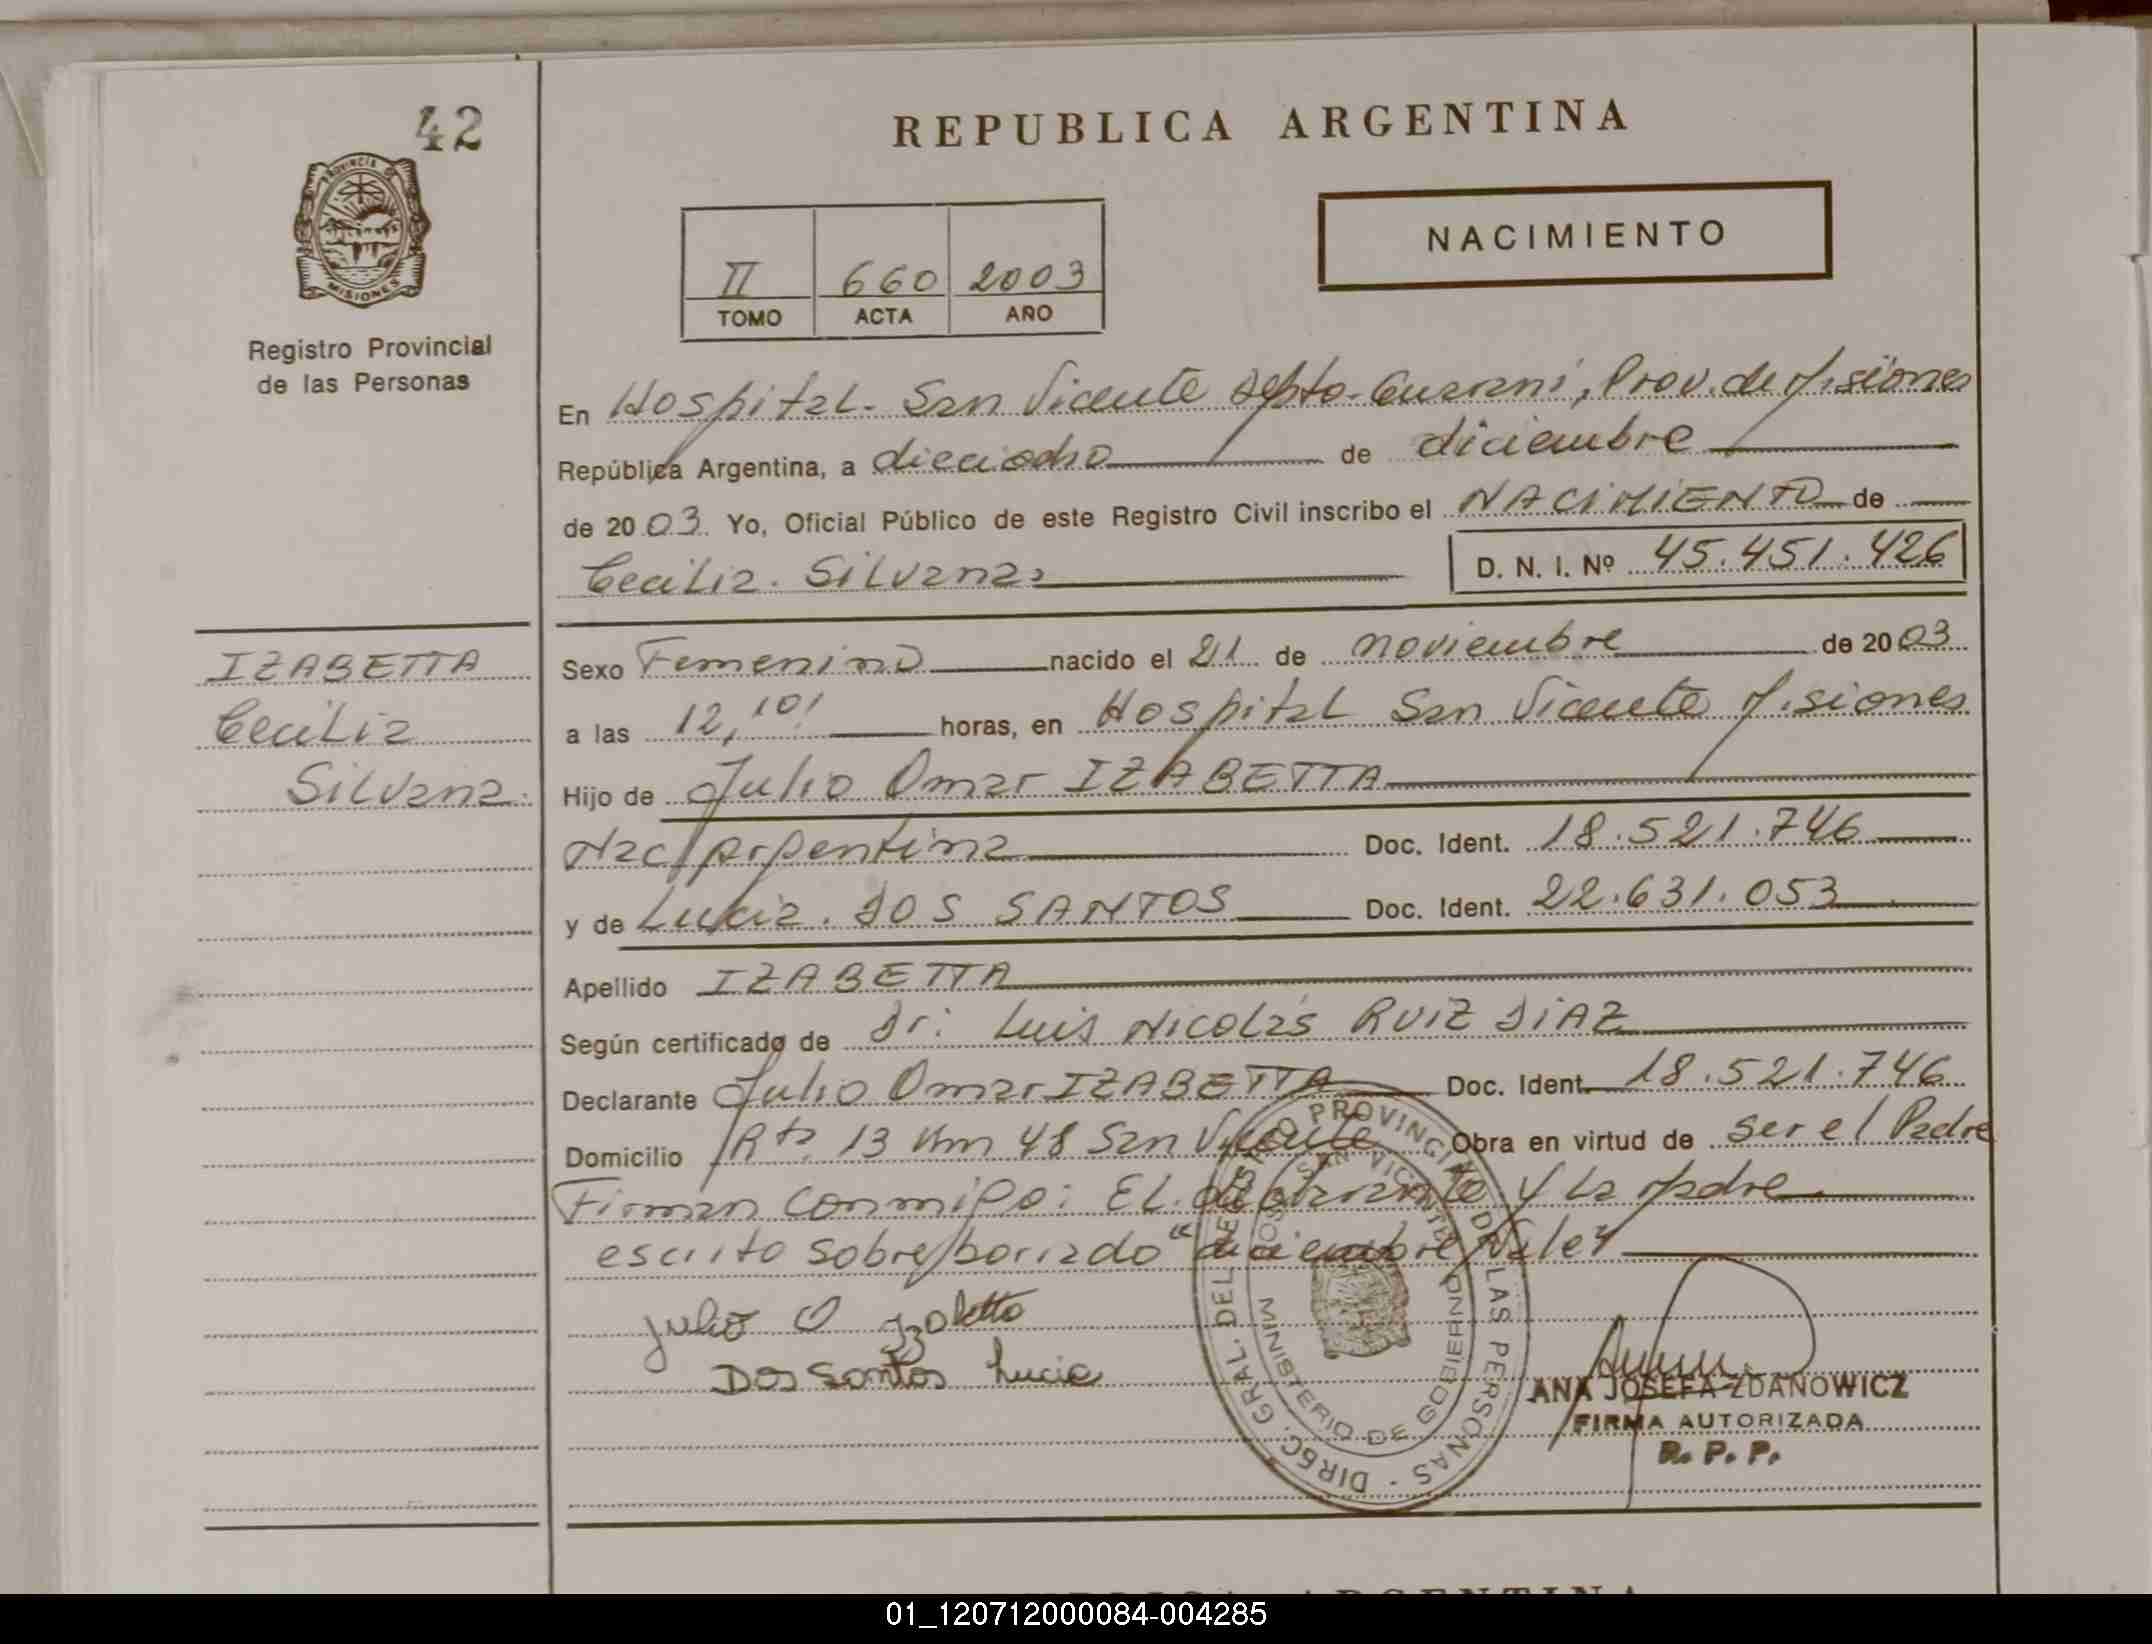 42
PROVINCIA DE
MISIONES
Registro Provincial
de las Personas
IZABETTA
Cecilia
Silvana.
REPUBLICA ARGENTINA
NACIMIENTO
II 660 2003
TOMO ACTA AÑO
En Hospital. San Vicente Depto. Guarani, Prov. de Misiones
República Argentina, a dieciocho de diciembre
de 2003. Yo, Oficial Público de este Registro Civil inscribo el NACIMIENTO de
Cecilia. Silvana. D. N. I. Nº 45.451.426
Sexo Femenino nacido el 21 de noviembre de 2003
a las 12,10' horas, en Hospital San Vicente Misiones
Hijo de Julio Omar IZABETTA
Nac. Argentina Doc. Ident. 18.521.746
y de Lucia. DOS SANTOS Doc. Ident. 22.631.053
Apellido IZABETTA
Según certificado de Dr: Luis Nicolás RUIZ DIAZ
Declarante Julio Omar IZABETTA Doc. Ident. 18.521.746
Domicilio Rta. 13 Km 48 San Vicente Obra en virtud de ser el Padre
Firman conmigo: El. declarante y la Madre
escrito sobre borrado "diciembre" Vale
Julio O Izabetta
Dos Santos Lucia
DIREC. GRAL. DEL REGISTRO PROVINCIAL DE LAS PERSONAS -
HOSP. SAN VICENTE
MINISTERIO DE GOBIERNO
ANA JOSEFA ZDANOWICZ
FIRMA AUTORIZADA
R. P. P.
01_120712000084-004285